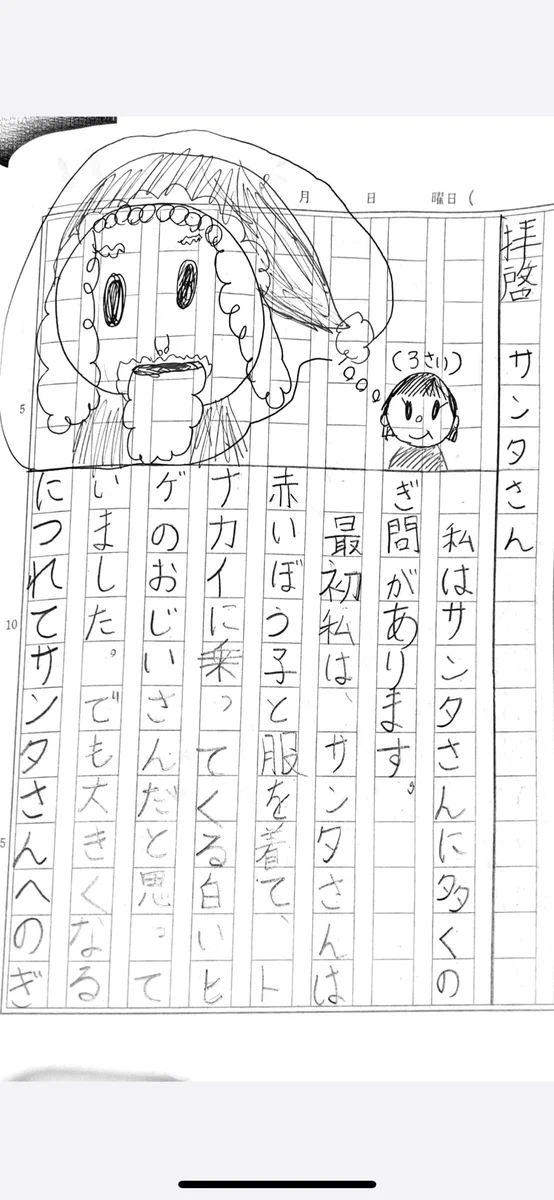 月 日 曜日（
拝啓 サンタさん
私はサンタさんに多くの
ぎ問があります。
最初私は、サンタさんは
赤いぼう子と服を着て、ト
ナカイに乗ってくる白いヒ
ゲのおじいさんだと思って
いました。でも大きくなる
につれてサンタさんへのぎ
（3さい）
5
10
5